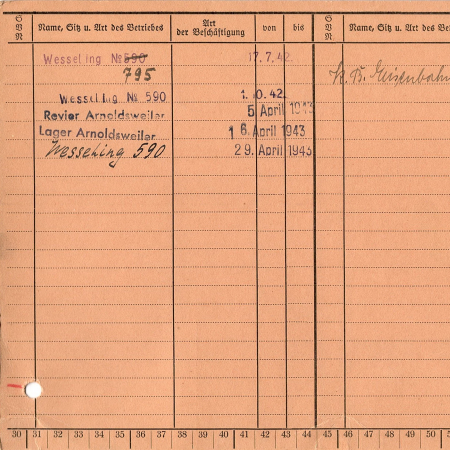 SBN Name, Sitz u. Art des Betriebes Art der Beschäftigung von bis SBN Name, Sitz u. Art des Be
Wesseling № 590 17.7.42.
795
k. B. Eisenbahn
Wesseling № 590 1. 10. 42.
Revier Arnoldsweiler 5 April 1943
Lager Arnoldsweiler 1 6. April 1943
Wesseling 590 2 9. April 1943
30 31 32 33 34 35 36 37 38 39 40 41 42 43 44 45 46 47 48 49 50 51